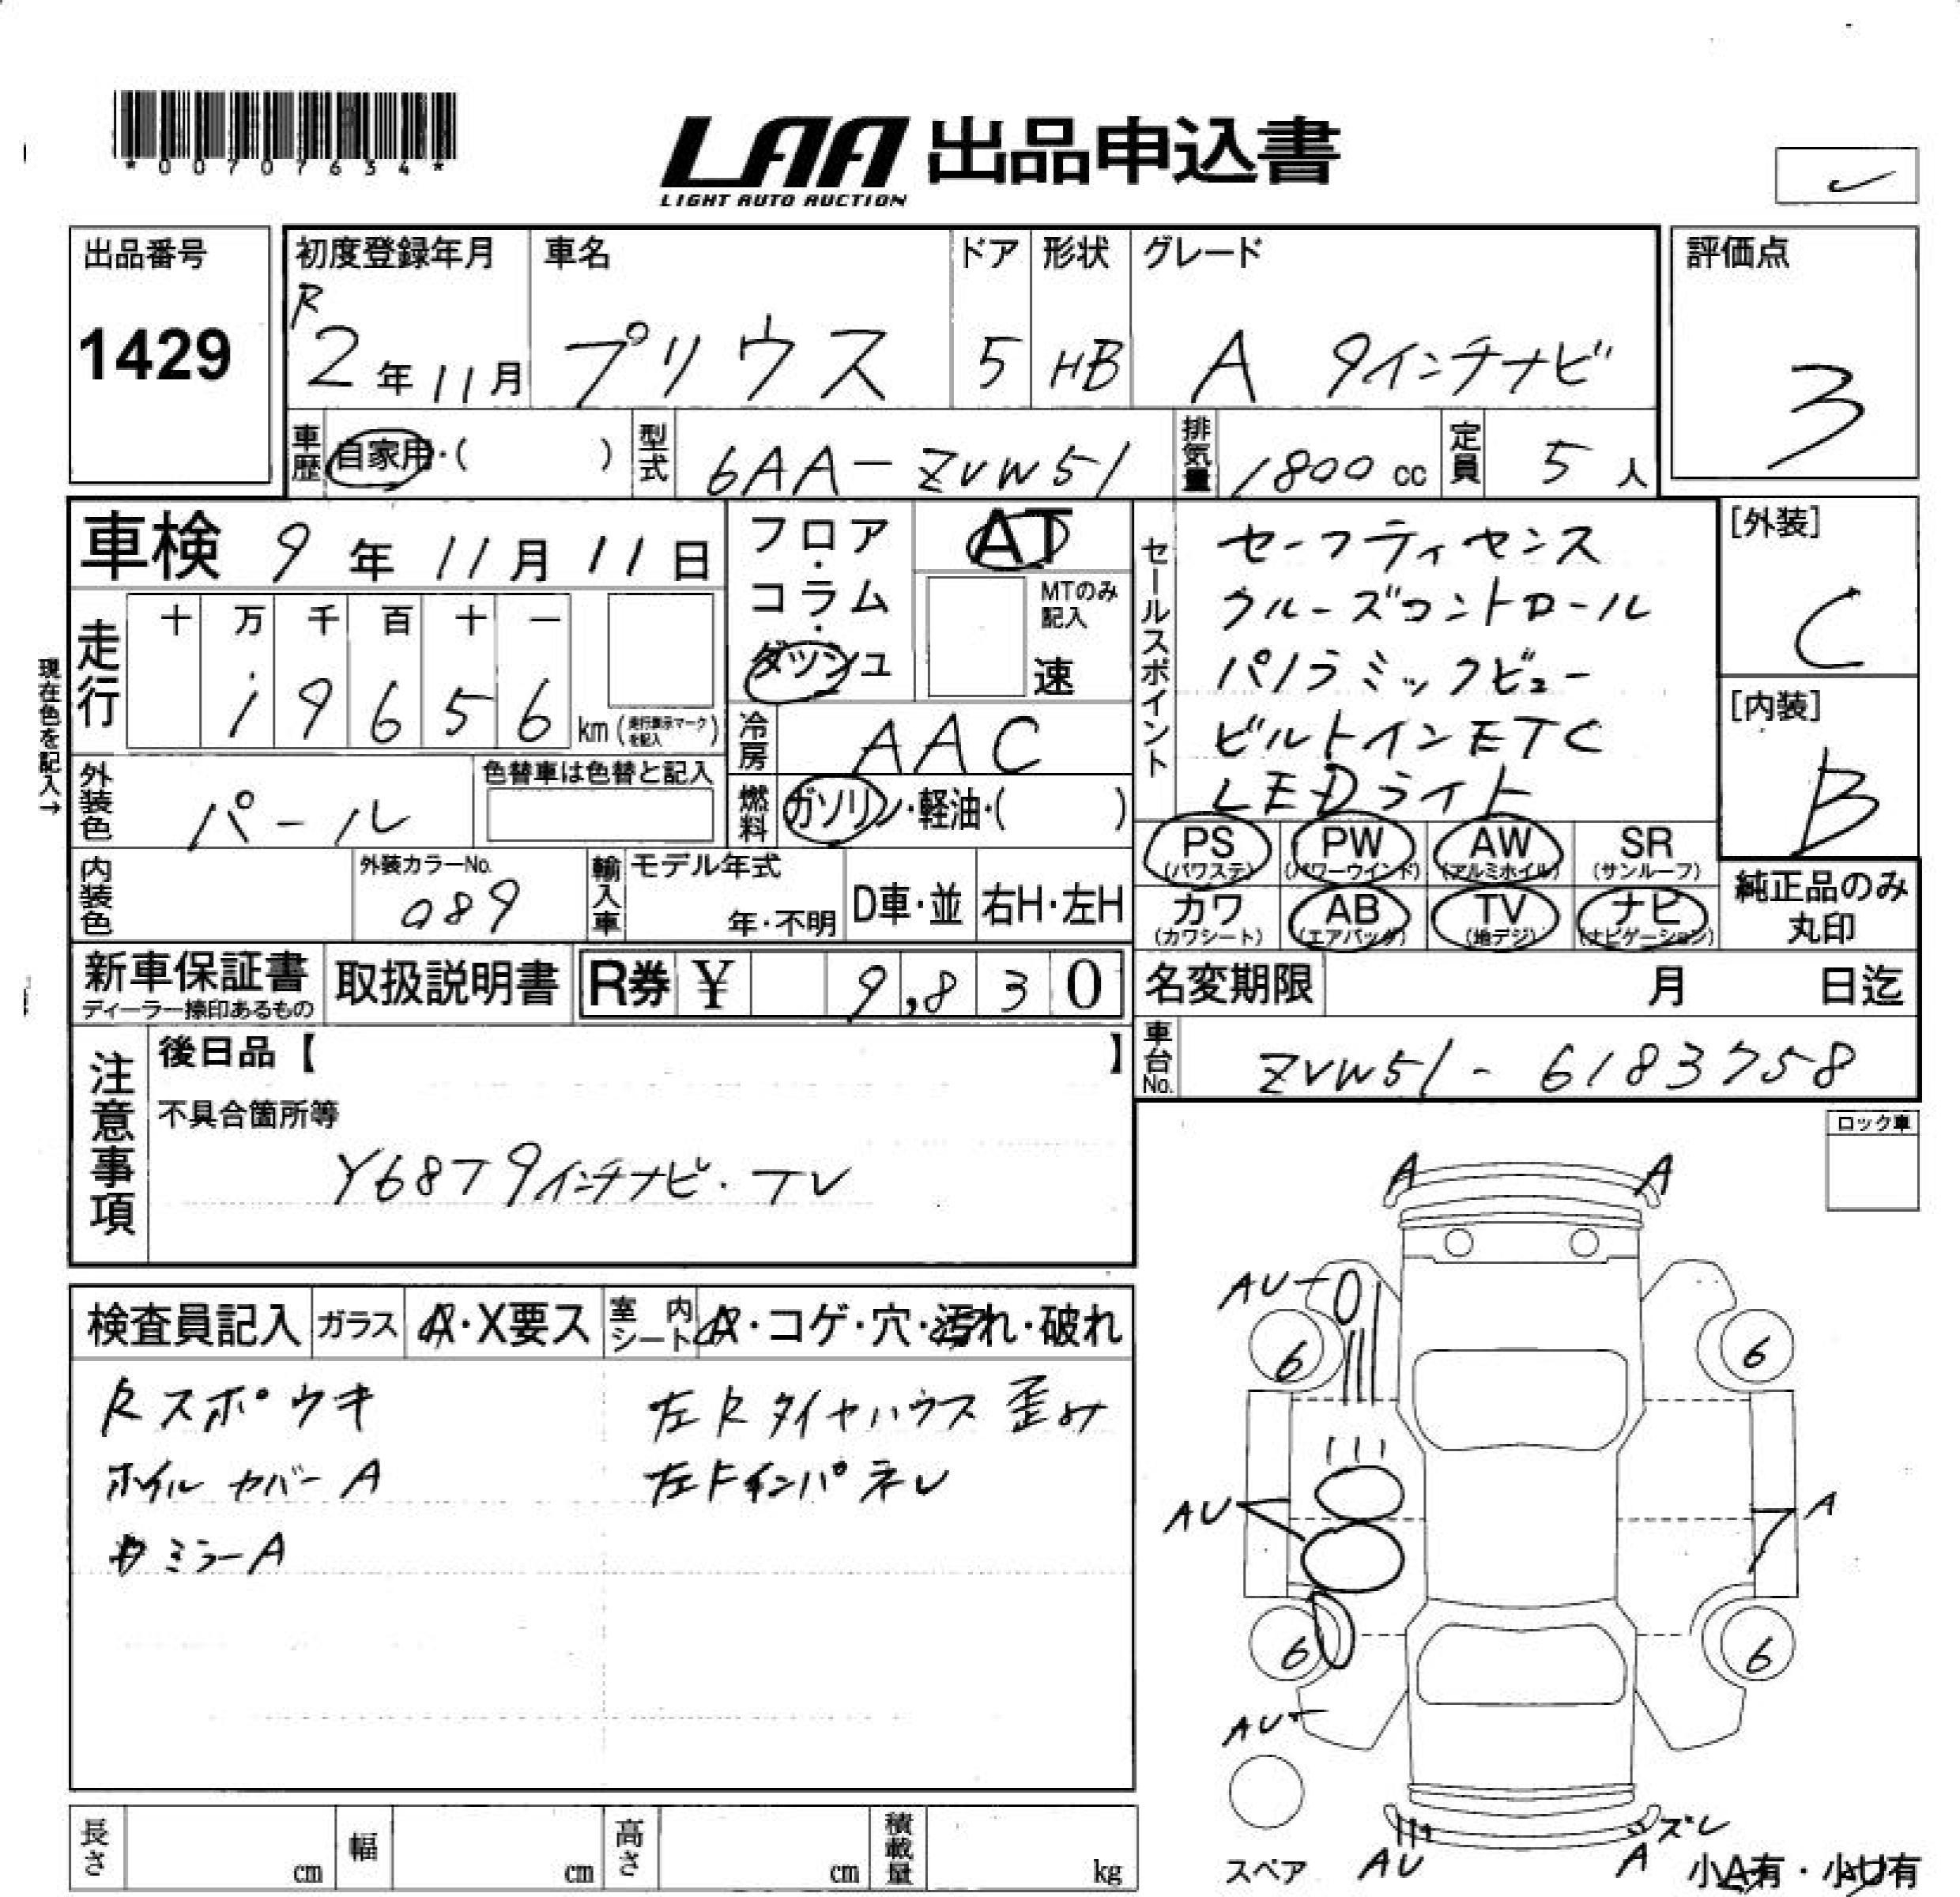 *00707634*
LAA 出品申込書
LIGHT AUTO AUCTION
出品番号
1429
初度登録年月
R
2年11月
車名
プリウス
ドア
5
形状
HB
グレード
A 9インチナビ
評価点
3
車歴
自家用・( )
型式
6AA-ZVW51
排気量
1800 cc
定員
5人
車検 9年11月11日
フロア・コラム・ダッシュ
AT
MTのみ記入
速
セールスポイント
セーフティセンス
クルーズコントロール
パノラミックビュー
ビルトインETC
LEDライト
[外装]
C
[内装]
B
現在色を記入→
走行
十 万 千 百 十 一
1 9 6 5 6 km (走行表示マークを記入)
冷房
AAC
外装色
パール
色替車は色替と記入
燃料
ガソリン・軽油・( )
PS (パワステ)
PW (パワーウインド)
AW (アルミホイル)
SR (サンルーフ)
カワ (カワシート)
AB (エアバッグ)
TV (地デジ)
ナビ (ナビゲーション)
純正品のみ
丸印
内装色
外装カラーNo.
089
輸入車
モデル年式
年・不明
D車・並
右H・左H
新車保証書
ディーラー捺印あるもの
取扱説明書
R券 ¥ 9,830
名変期限 月 日迄
車台No.
ZVW51-6183758
注意事項
後日品【 】
不具合箇所等
Y68T9インチナビ・TV
ロック車
検査員記入
ガラス
A・X要ス
室内シート
A・コゲ・穴・汚れ・破れ
Rスポウキ
左Rタイヤハウス歪み
ホイルカバーA
左Fインパネレ
ミラーA
A A
AU
6 6
AU
A
6 6
AU
ズレ
AU
A
スペア
小A有・小U有
長さ cm
幅 cm
高さ cm
積載量 kg